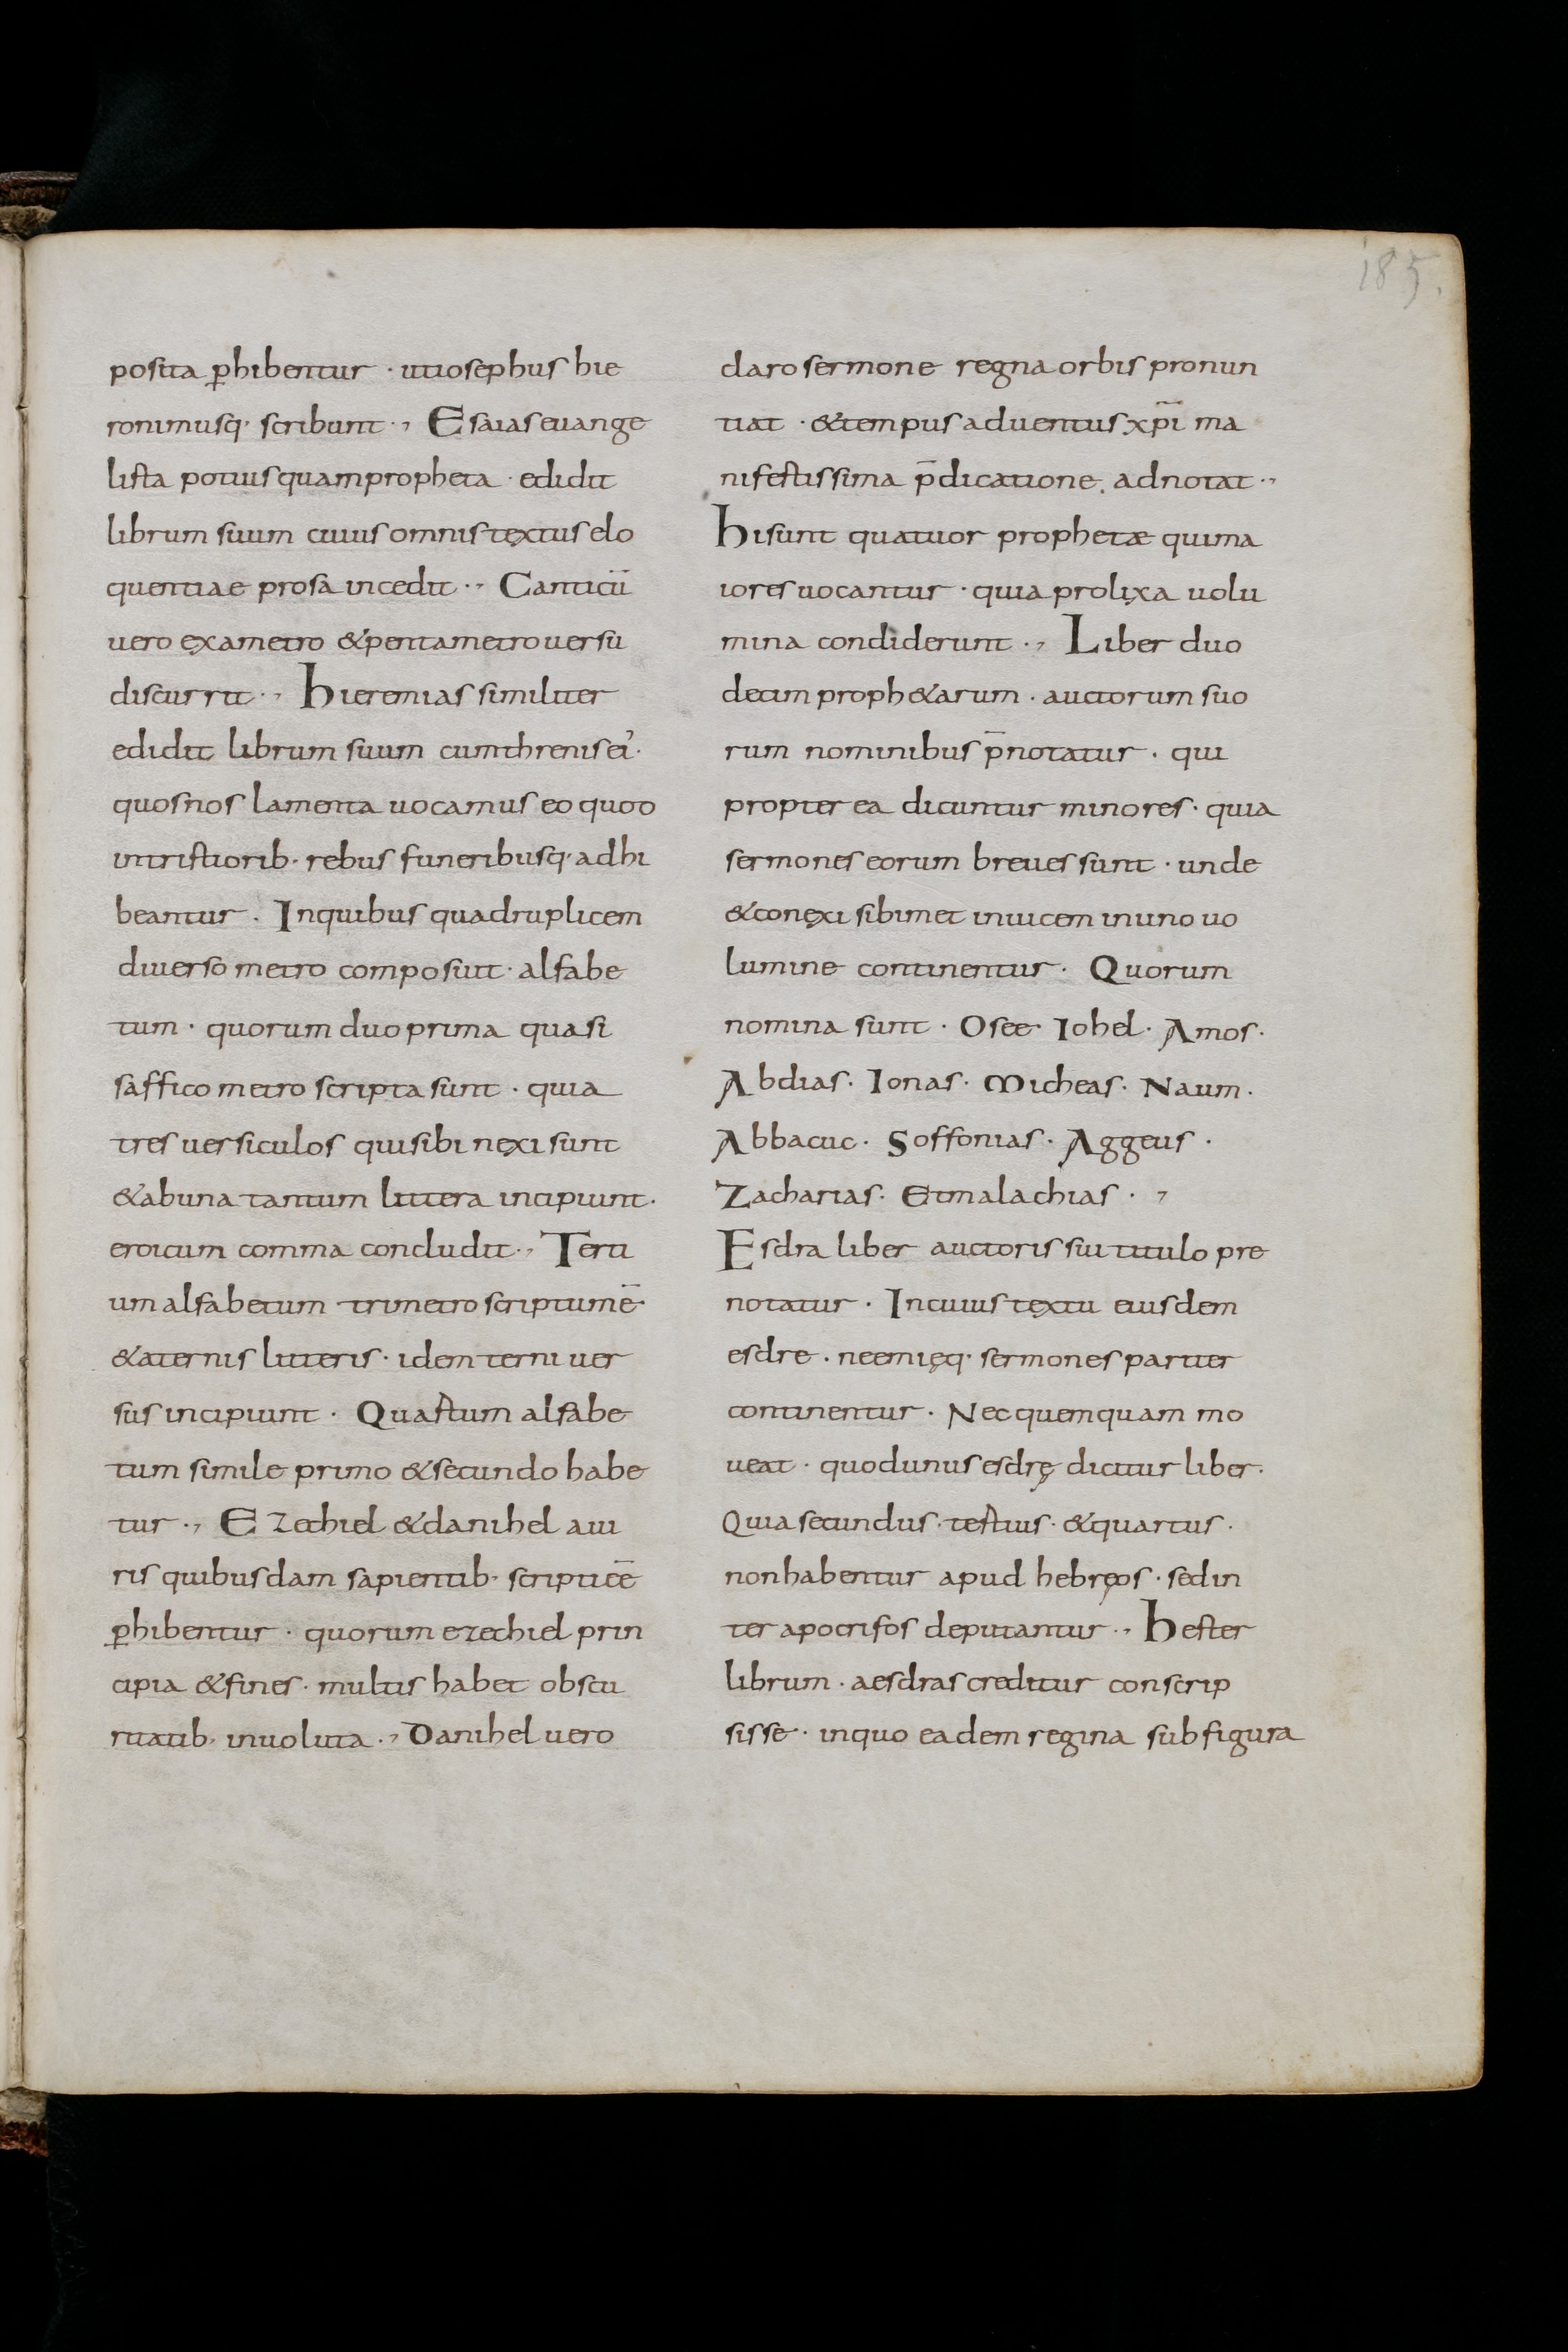 185.
posita ꝑhibentur · utiosephus hie
ronimusq· scribunt ·, Esaias euange
lista potius quam propheta · edidit
librum suum cuius omnis textus elo
quentiae prosa incedit ·, Canticū
uero exametro &pentametro uersu
discurrit ·, Hieremias similiter
edidit librum suum cum threnis ei’·
quos nos lamenta uocamus eo quod
intristiorib· rebus funeribusq· adhi
beantur · Inquibus quadruplicem
diuerso metro composuit · alfabe
tum · quorum duo prima quasi
saffico metro scripta sunt · quia
tres uersiculos qui sibi nexi sunt
&abuna tantum littera incipiunt ·
eroicum comma concludit ·, Terti
um alfabetum trimetro scriptumē·
&aternis litteris · idem terni uer
sus incipiunt · Quartum alfabe
tum simile primo &secundo habe
tur ·, Ezechiel &danihel aui
ris quibusdam sapientib· scripti cē
ꝑhibentur · quorum ezechiel prin
cipia &fines · multis habet obscu
ritatib· inuoluta ·, Danihel uero
claro sermone regna orbis pronun
tiat · &tempus aduentus xp̄i ma
nifestissima p̄dicatione, adnotat ·,
Hi sunt quatuor prophetæ qui ma
iores uocantur · quia prolixa uolu
mina condiderunt ·, Liber duo
decim proph&arum · auctorum suo
rum nominibus p̄notatur · qui
propter ea dicuntur minores · quia
sermones eorum breues sunt · unde
&conexi sibimet inuicem inuno uo
lumine continentur · Quorum
nomina sunt · Osee Iohel · Amos ·
Abdias · Ionas · Micheas · Naum ·
Abbacuc · Soffonias · Aggeus ·
Zacharias · Et malachias · ,
Esdra liber auctoris sui titulo pre
notatur · In cuius textu eiusdem
esdre · neemięq· sermones pariter
continentur · Nec quemquam mo
ueat · quod unus esdrę dicitur liber ·
Quia secundus · testius · &quartus ·
non habentur apud hebręos · sed in
ter apocrifos deputantur ·, Hester
librum · aesdras creditur conscrip
sisse · inquo eadem regina sub figura